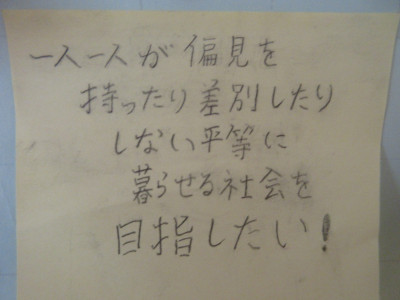 一人一人が偏見を
持ったり差別したり
しない平等に
暮らせる社会を
目指したい!